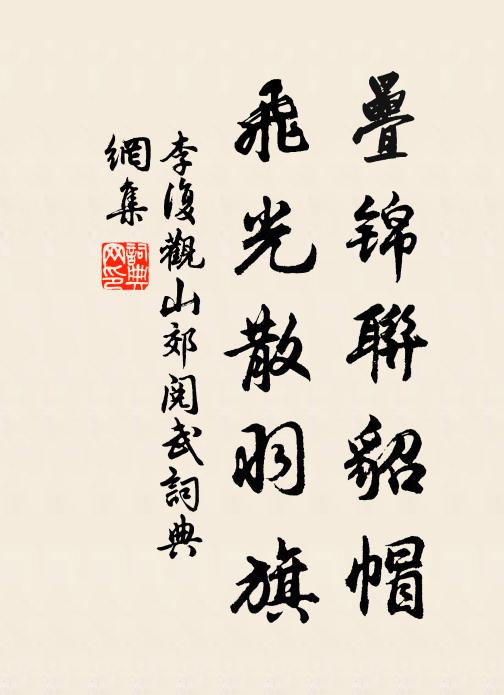 疊錦聯貂帽
飛光散羽旗
李復觀山郊閱武詞典
網集
詞典網印